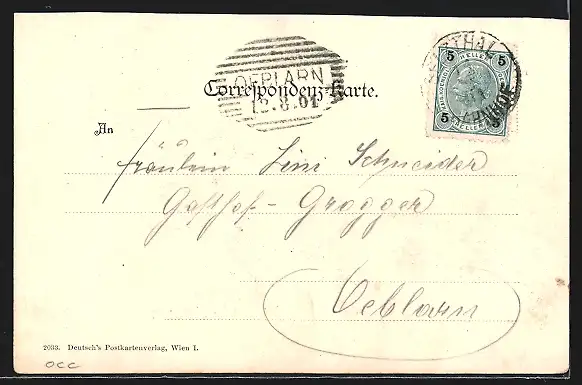 5 5
5 5
BAHNHOF
OEBLARN
12.8.01
Correspondenz-Karte.
An
Fräulein Lini Schneider
Gasthof - Grogger
Oeblarn
2033. Deutsch's Postkartenverlag, Wien I.
occ